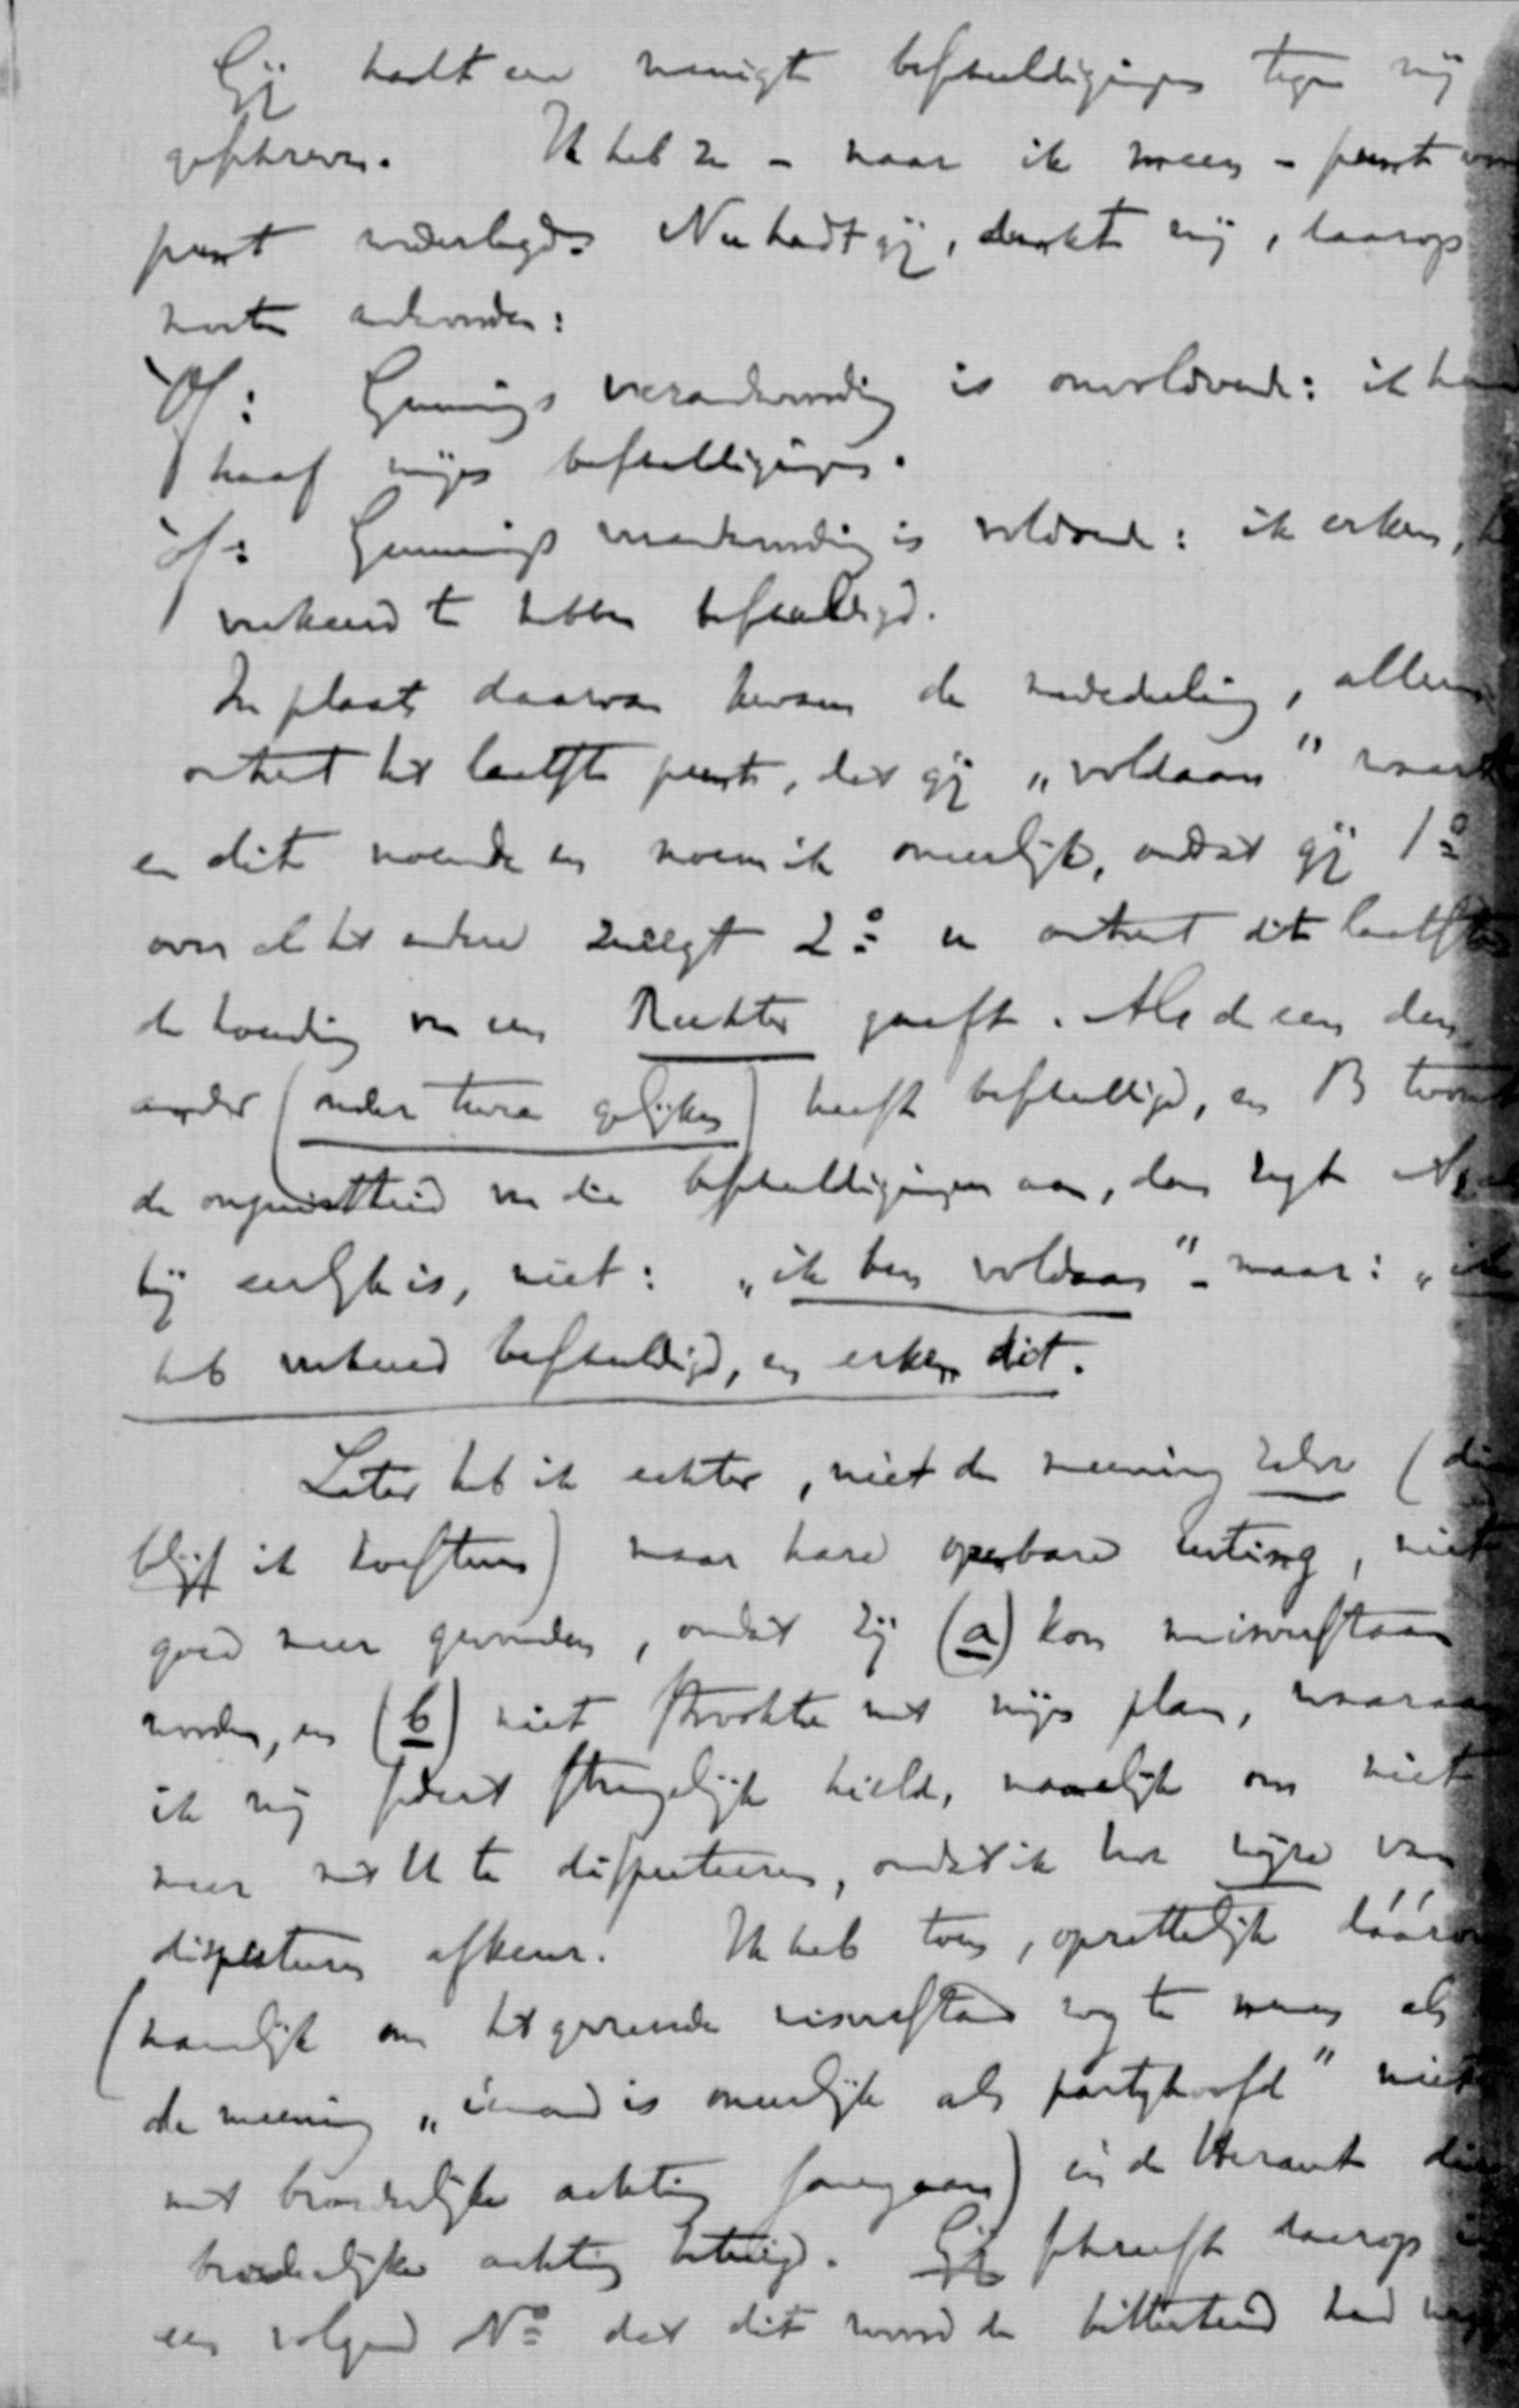 Gij hadt een menigte beschuldigingen tegen mij
geschreven. Ik heb ze - naar ik meen - punt voor
punt wederlegd. Nu hadt gij, dunkt mij, daarop
moeten antwoorden:
Of: Gunnings verantwoording is onvoldoende: ik hand
haaf mijne beschuldigingen.
of: Gunnings verantwoording is voldoende: ik erken, hem
verkeerd te hebben beschuldigd.
In plaats daarvan kwam de mededeeling, alleen
omtrent het laatste punt, dat gij „voldaan" waart
en dit noemde en noem ik oneerlijk, omdat gij 1º
over al het andere zweegt 2º en omtrent dit laatste
de houding van een Rechter geeft. Als de een den
ander (onder twee gelijken) heeft beschuldigd, en B toont
de onjuistheid van die beschuldigingen aan, dan zegt A, als
hij eerlijk is, niet: „ik ben voldaan" - maar: „ik
heb verkeerd beschuldigd, en erken dit.
Later heb ik echter, niet de meening zelve (die
blijf ik koesteren) maar hare openbare uiting, niet
goed meer gevonden, omdat zij (a) kon misverstaan
worden, en (b) niet strookte met mijn plan, waaraan
ik mij sedert strengelijk hield, namelijk om niet
meer met U te disputeeren, omdat ik Uwe wijze van
disputeeren afkeur. Ik heb toen, opzettelijk dáárom
(namelijk om het gezegde misverstand weg te nemen als
de meening „iemand is oneerlijk als partyhoofd" niet
met broederlijke achting samengaan) in de Heraut die
broederlijke achting betuigd. Gij schreeft daarop in
een volgend Nº dat dit woord de bitterheid had weg